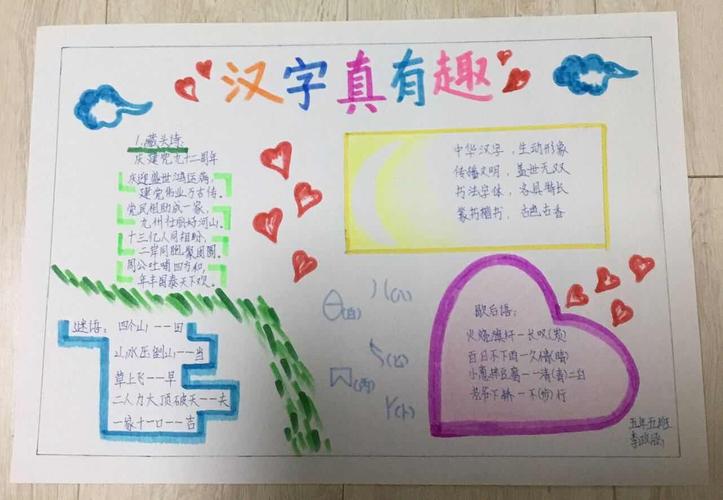 汉字真有趣
1.藏头诗:
庆建党九十二周年
庆迎盛世鸿运病，
建党伟业万古传。
党民相助成一家，
九州壮丽好河山。
十三亿人同相盼，
二岸同胞聚团圆。
周公吐哺四方和，
年丰国泰天下欢。
中华汉字，生动形象
传播文明，盖世无双
书法字体，各具特长
篆书楷书，古色古香
谜语：四个山一一田
山水压倒山一一当
草上飞一一早
二人力大顶破天一一夫
一家十一口一一吉
(自)
(八)
(比)
(西)
歇后语：
火烧旗杆一长叹(炭)
百日不下雨一久情(晴)
小葱拌豆腐一一清(青)二白
老爷下轿一不(步)行
五年五班